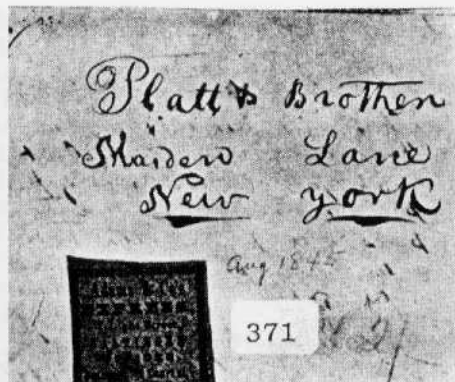 Platt & Brother
Maiden Lane
New York
Aug 1845
371